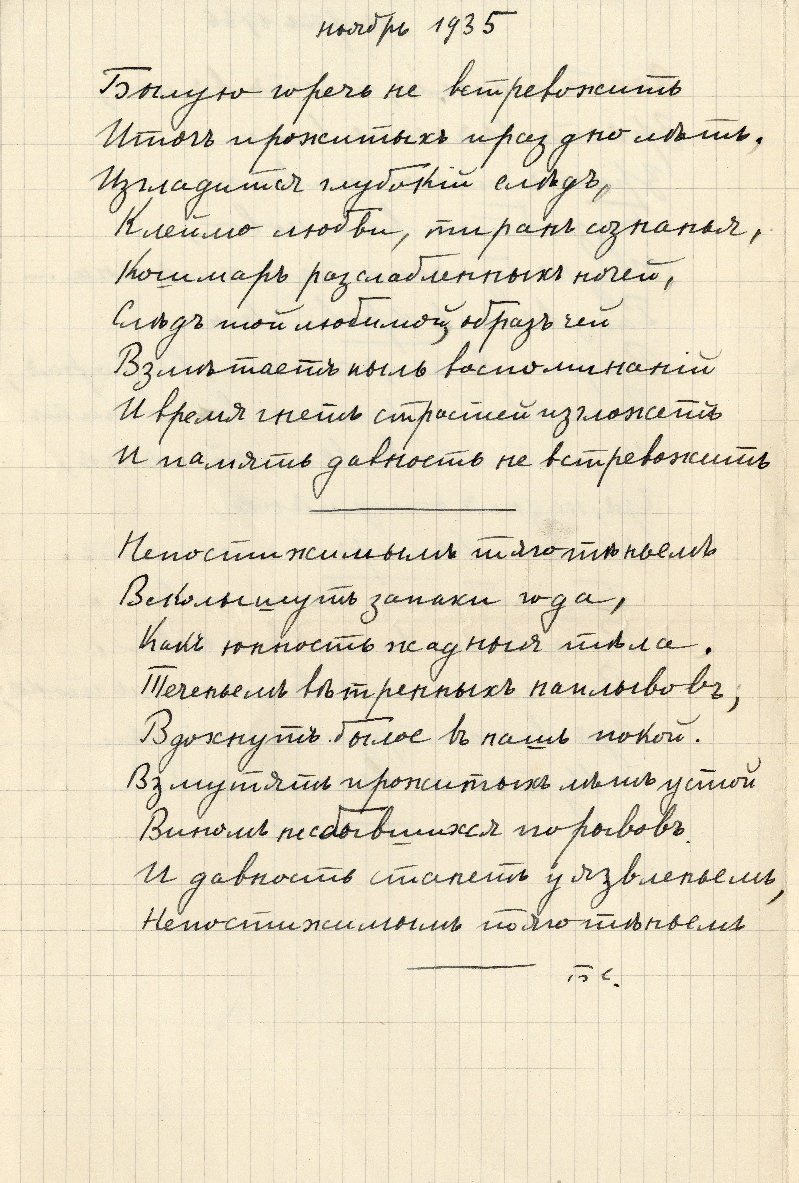 ноябрь 1935
Былую горечь не встревожить
Итогъ прожитыхъ праздно лѣтъ.
Изгладится глубокій слѣдъ,
Клеймо любви, тиранъ сознанья,
Кошмаръ разслабленныхъ ночей,
Слѣдъ той любимой, образъ чей
Взмѣтаетъ пыль воспоминаній
И время гнетъ страстей изгложетъ
И память давность не встревожитъ
Непостижимымъ тяготѣньемъ
Всколышутъ запахи года,
Какъ юность жадныя тѣла.
Теченьемъ вѣтренныхъ наплывовъ,
Вдохнутъ былое въ нашъ покой.
Взмутятъ прожитыхъ лѣтъ устой
Виномъ несбывшихся порывовъ
И давность станетъ уязвленьемъ,
Непостижимымъ тяготѣньемъ
Б С.